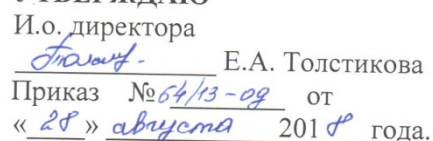 УТВЕРЖДАЮ
И.о. директора
Е.А. Толстикова
Приказ №64/13-од от
«28» августа 2018 года.